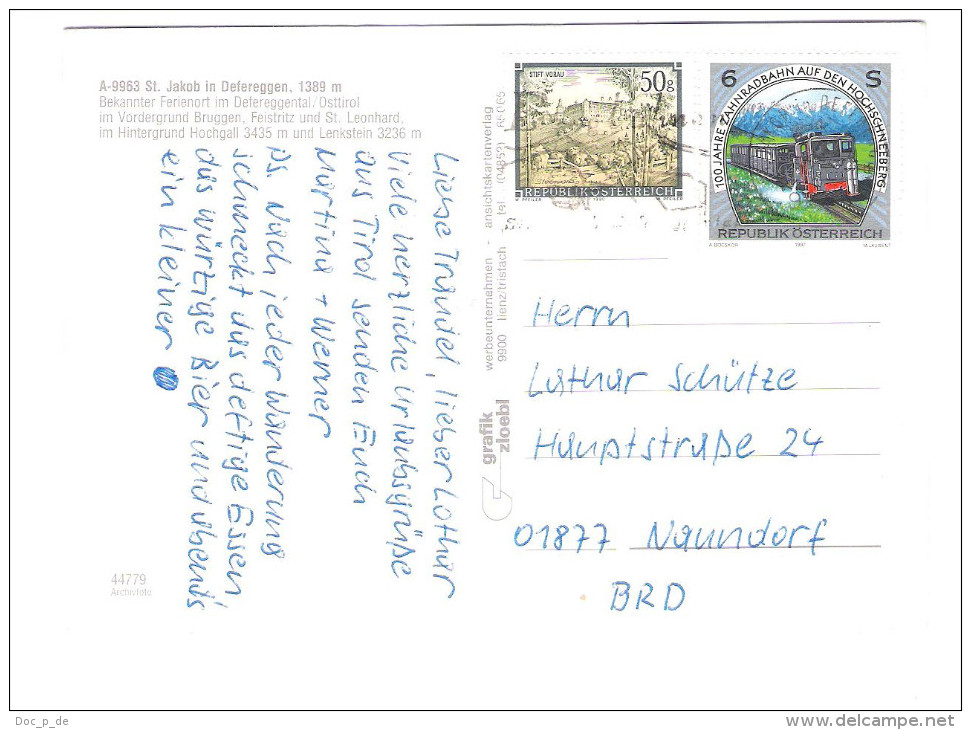 A-9963 St. Jakob in Defereggen, 1389 m
Bekannter Ferienort im Defereggental/Osttirol
im Vordergrund Bruggen, Feistritz und St. Leonhard,
im Hintergrund Hochgall 3435 m und Lenkstein 3236 m
Liebe Traudel, lieber Lothar
Viele herzliche Urlaubsgrüße
aus Tirol senden Euch
Martina + Werner
Ps. Nach jeder Wanderung
schmeckt das deftige Essen
das würzige Bier und abends
ein kleiner
44779
Archivfoto
grafik
zloebl
werbeunternehmen - ansichtskartenverlag
9900 lienz/tristach tel (04852) 65065
STIFT VORAU
50g
REPUBLIK ÖSTERREICH
1990
6 S
100 JAHRE ZAHNRADBAHN AUF DEN HOCHSCHNEEBERG
REPUBLIK ÖSTERREICH
Herrn
Lothar Schütze
Hauptstraße 24
01877 Naundorf
BRD
Doc_p_de
www.delcampe.net